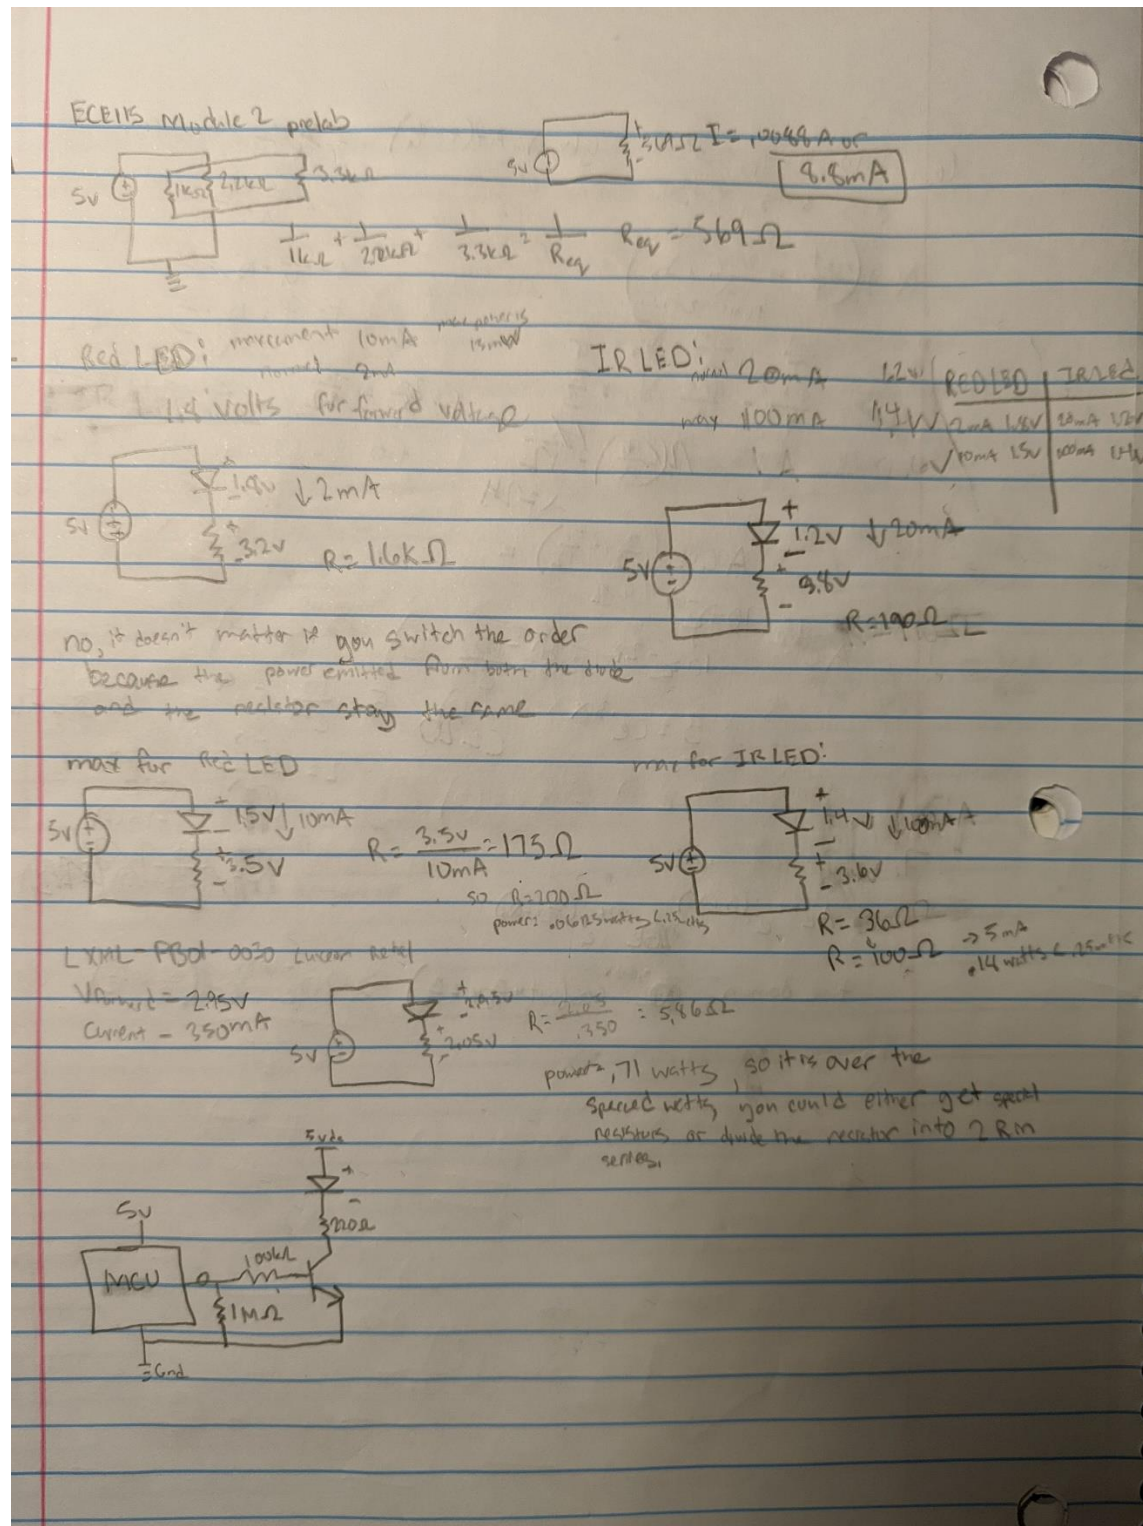 ECE115 Module 2 prelab
5v 1kΩ 2.2kΩ 3.3kΩ
5v + - 569Ω I = .0088A or
8.8mA
1/1kΩ + 1/2.2kΩ + 1/3.3kΩ = 1/Req Req = 569Ω
Red LED: 10mA max power is
normal 2mA
1.8 volts for forward voltage
IR LED: normal 20mA 1.2v
max 100mA 1.4V
RED LED IR LED
2mA 1.8V 20mA 1.2V
10mA 1.5V 100mA 1.4V
5v + 1.8v - ↓ 2mA
+ - 3.2v R = 1.6kΩ
5V + 1.2V - ↓ 20mA
+ 3.8v -
R = 190Ω
no, it doesn't matter if you switch the order
because the power emitted from both the diode
and the resistor stay the same
max for Red LED
5v + 1.5V - ↓ 10mA
+ 3.5V -
R = 3.5v/10mA = 175Ω
so R = 200Ω
power = .06125 watts <.25
max for IR LED:
5V + 1.4V - ↓ 100mA
+ 3.6v -
R = 36Ω
R = 100Ω → 5mA
.14 watts <
LXML-PB01-0030
Vforward = 2.95V
Current - 350mA
5V + 2.95V -
+ 2.05V -
R = 2.05/.350 = 5.86Ω
power = .71 watts, so it is over the
watts, you could either get special
resistors or divide the resistor into 2 R in
series.
5vdc
+
-
220Ω
5v
MCU
100kΩ
1MΩ
Gnd